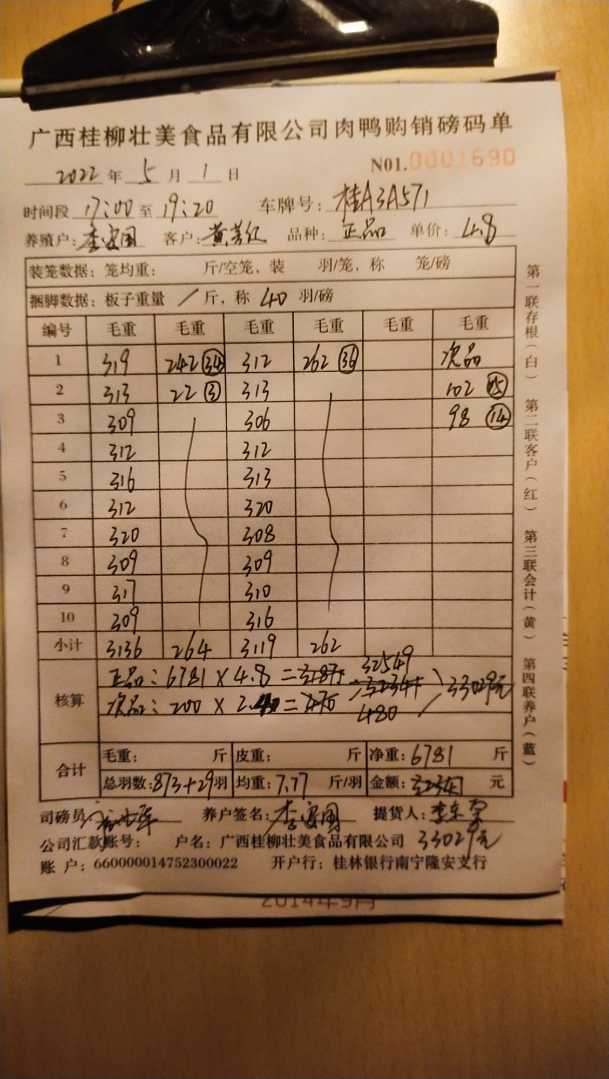 广西桂柳壮美食品有限公司肉鸭购销磅码单
2022 年 5 月 1 日 N01.0001690
时间段 17:00 至 19:20 车牌号: 桂A3A571
养殖户: 李安国 客户: 品种: 正品 单价: 4.8
装笼数据: 笼均重: 斤/空笼、装 羽/笼、称 笼/磅
捆脚数据: 板子重量 / 斤, 称 40 羽/磅
编号 毛重 毛重 毛重 毛重 毛重 毛重
1 319 242 34 312 262 36 次品
2 313 22 3 313 102 15
3 309 306 98 14
4 312 312
5 316 313
6 312 320
7 320 308
8 309 309
9 317 310
10 309 316
小计 3136 264 3119 262
核算 正品: 6781 × 4.8 = 32549
次品: 200 × = 480 33029元
合计 毛重: 斤 皮重: 斤 净重: 6781 斤
总羽数: 873+29 羽 均重: 7.77 斤/羽 金额: 元
司磅员 养户签名: 李安国 提货人:
公司汇款账号: 户名: 广西桂柳壮美食品有限公司 33029元
账 户: 660000014752300022 开户行: 桂林银行南宁隆安支行
第一联存根(白) 第二联客户(红) 第三联会计(黄) 第四联养户(蓝)
2014年9月